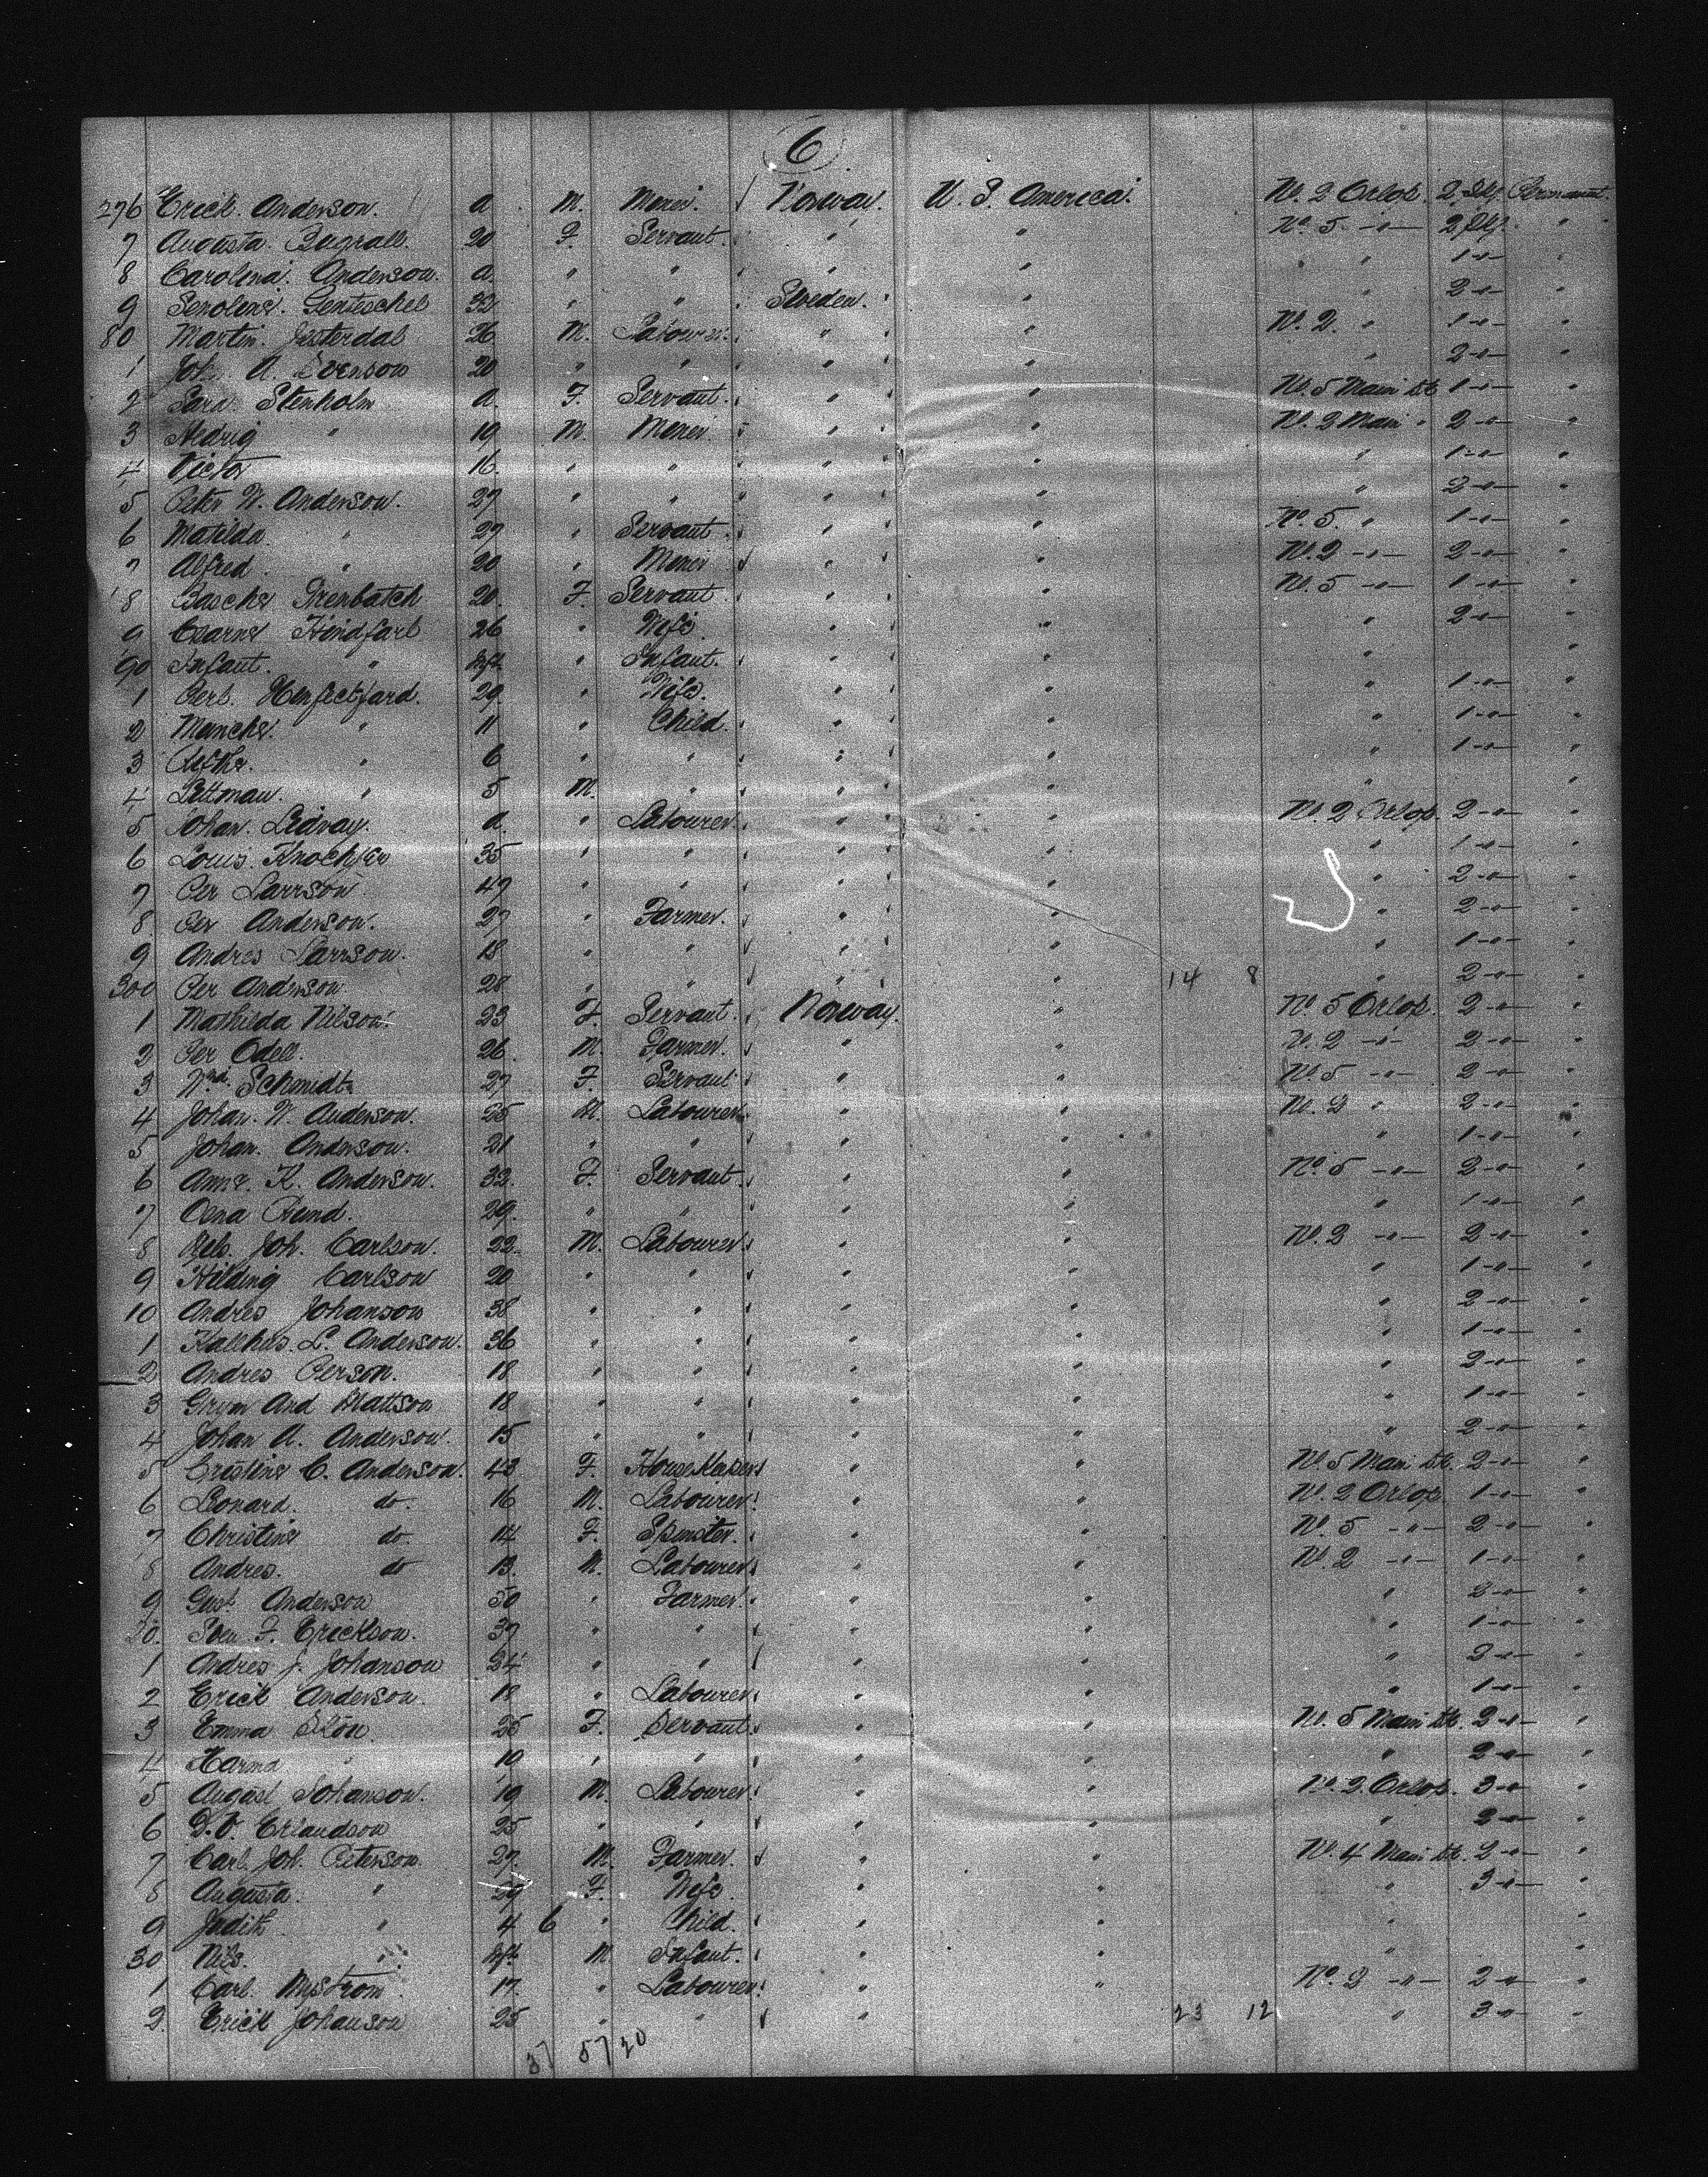 6
296 Erick. Anderson. a. M. Miner. Norway. U. S. America. No. 2 Orlop. 2 Slf. Permanent.
7 Augusta. 20 F. Servant. " " No. 5 -"- 2 Slf. "
8 Carolina. Anderson. a. " " " " " 1 -"- "
9 32 " " Sweden. " " 2 -"- "
80 Martin. 26 M. Labourer. " " No. 2. " 1 -"-
1 Joh. A. Svenson 20 " " " " " 2 -"-
2 Sara Stenholm a. F. Servant. " " No. 5 Main Dk 1 -"- "
3 " 19 M. Miner. " " No. 2 Main " 2 -"- "
4 Victor 16. " " " " " 1 -"- "
5 Peter W. Anderson. 27 " " " " " 2 -"- "
6 Matilda. " 27 " Servant. " " No. 5. " 1 -"- "
7 Alfred. " 20 " Miner " " No. 2 -"- 2 -"- "
8 20. F. Servant. " " No. 5 -"- 1 -"- "
9 26 " Wife. " " " 2 -"- "
90 Infant. " Inft. " Infant. " " " "
1 29. " Wife. " " " 1 -"- "
2 " 11 " Child. " " " 1 -"- "
3 " 6 " " " " " 1 -"- "
4 Littman. " 5 M. " " " " "
5 Johan. a. " Labourer. " " No. 2 Orlop. 2 -"- "
6 Louis. 35 " " " " " 1 -"- "
7 Per Larrson 47 " " " " " 2 -"- "
8 Per Anderson. 27 " Farmer. " " " 2 -"- "
9 Andres Larrson. 18 " " " " " 1 -"- "
300 Per Anderson 28 " " " " 14 8 " 2 -"- "
1 Mathilda Nilson. 23 F. Servant. Norway. " No. 5 Orlop. 2 -"- "
2 Per Odell. 26. M. Farmer. " " No. 2 -"- 2 -"- "
3 Schmidt 27 F. Servant " " No. 5 -"- 2 -"- "
4 Johan. W. Anderson. 25 M. Labourer. " " No. 2 " 2 -"- "
5 Johan. Anderson. 21 " " " " " 1 -"- "
6 Anna. K. Anderson. 32. F. Servant. " " No. 5 -"- 2 -"- "
7 29. " " " " " 1 -"- "
8 Joh. Carlson. 22. M. Labourer. " " No. 2 -"- 2 -"- "
9 Hilding Carlson 20 " " " " " 1 -"- "
10 Andres Johanson 38 " " " " " 2 -"- "
1 L. Anderson. 36 " " " " " 1 -"- "
2 Andres Person. 18 " " " " " 2 -"- "
3 And Mattson 18 " " " " " 1 -"- "
4 Johan A. Anderson. 15 " " " " " 2 -"- "
5 Cristine C. Anderson. 43 F. House Keeper " " No. 5 Main Dk. 2 -"- "
6 Leonard. do. 16 M. Labourer. " " No. 2 Orlop. 1 -"- "
7 Christine do. 14 F. Spinster. " " No. 5 -"- 2 -"- "
8 Andres. do 13. M. Labourer. " " No. 2 -"- 1 -"- "
9 Gust. Anderson 50 " Farmer. " " " 2 -"- "
20. Sven F. Erickson. 37 " " " " " 1 -"- "
1 Andres J. Johanson 24 " " " " " 2 -"- "
2 Erick Anderson. 18 " Labourer. " " " 1 -"- "
3 Emma 25 F. Servant. " " No. 5 Main Dk. 2 -"- "
4 " 10 " " " " " 2 -"- "
5 August Johanson. 19 M. Labourer. " " No. 2. Orlop. 3 -"- "
6 Erlandson 25 " " " " " 2 -"- "
7 Carl. Joh. Peterson. 27. M. Farmer. " " No. 4 Main Dk. 2 -"- "
8 Augusta. " 29 F. Wife. " " " 3 -"- "
9 Judith " 4 6 " Child. " " " "
30 Nils. " Inft. M Infant. " " " "
1 Carl. Nystrom. 17. " Labourer. " " No. 2 -"- 2 -"- "
2. Erick Johanson 25 " " " 23 12 " 3 -"- "
37 57 20